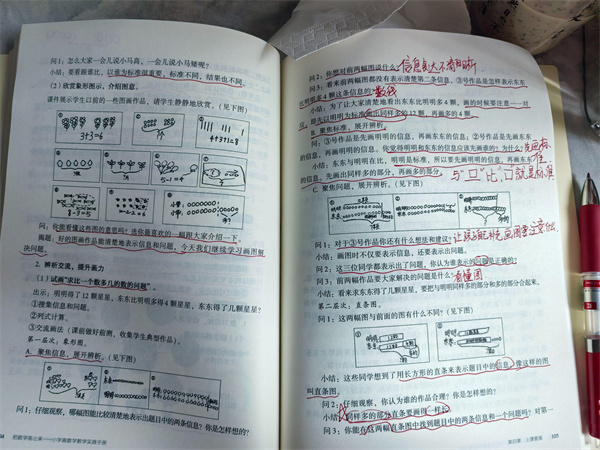 问1:怎么大家一会儿说小马高,一会儿说小马矮呢?
小结:要看跟谁比,以谁为标准很重要,标准不同,结果也不同。
(2)欣赏象形图示,介绍图意。
课件展示学生以前的一些图画作品,请学生静静地欣赏。(见下图)
3+3=6
4+3+1=8
5-1=4
8-3=5
问:你能看懂这些图的意思吗?选你最喜欢的一幅跟大家介绍一下。
小结:好的图画作品能清楚地表示信息和问题,今天我们继续学习画图解
决问题。
2. 辨析交流,提升画力
(1)试画“求比一个数多几的数的问题”
出示:明明得了12颗星星,东东比明明多得4颗星星,东东得了几颗星星?
①搜集信息和问题。
②列式计算。
③交流画法(课前做好前测,收集学生典型作品)。
第一层次:象形图。
A. 聚焦信息,展开辨析。(见下图)
问1:仔细观察,哪幅图能比较清楚地表示出题目中的两条信息?你是怎样想的?
把数学画出来——小学画数学教学实践手册
问2:你想对前两幅图说什么?
信息表达不清晰
问3:看来前两幅图都没有表示清楚第二条信息,③号作品是怎样表示东东
比明明多4颗这条信息的?
小结:为了让大家清楚地看出东东比明明多4颗,画的时候要注意一一对
应,即先以明明为标准画出同样多的12颗,再画多的4颗。
B. 聚焦标准,展开辨析。
问:③号作品是先画明明的信息,再画东东的信息;②号作品是先画东东
的信息,再画明明的信息。你觉得明明和东东的信息应该先画谁的?为什么?
小结:东东与明明在比,明明是标准,所以要先画明明的信息,再画东东
的信息,先画出同样多的部分,再画多的部分。
C. 聚焦问题,展开辨析。(见下图)
问1:对于③号作品你还有什么想法和建议?
小结:画图时不仅要表示信息,还要表示出问题。
问2:这三位同学都表示出了问题,你认为谁表示的问题是正确的?
问3:前两幅作品要大家解决的问题是什么?
看懂图
小结:看来求东东得了几颗星星,要把与明明同样多的部分和多的部分合起来。
第二层次:直条图。
问1:这两幅图与前面的图有什么不同?(见下图)
小结:这些同学想到了用长方形的直条来表示题目中的信息,像这样的图
叫直条图。
问2:仔细观察,你认为谁的作品合理?你是怎样想的?
小结:同样多的部分直条要画得一样长。
问3:你能在这两幅直条图中找到题目中的两条信息和一个问题吗?对第一
第四章 上课策略 105